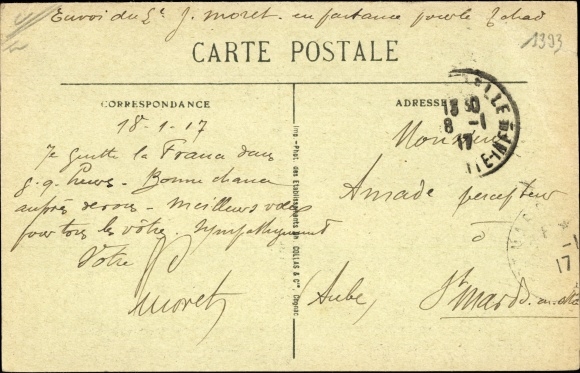 Envoi du Lt J. Moret en partance pour le Tchad
1393
CARTE POSTALE
CORRESPONDANCE
ADRESSE
18-1-17
Je quitte la France dans
q.q. heures - Bonne chance
auprès de vous - Meilleurs vœux
pour tous les vôtres. Sympathiquement
Votre
Moret
Imp.-Phot. des Etablissements COLLAS & Cie, Cognac
13 30
8 -1
17
Monsieur
Amade percepteur
à
St Mards en Othe
(Aube)
-1
17